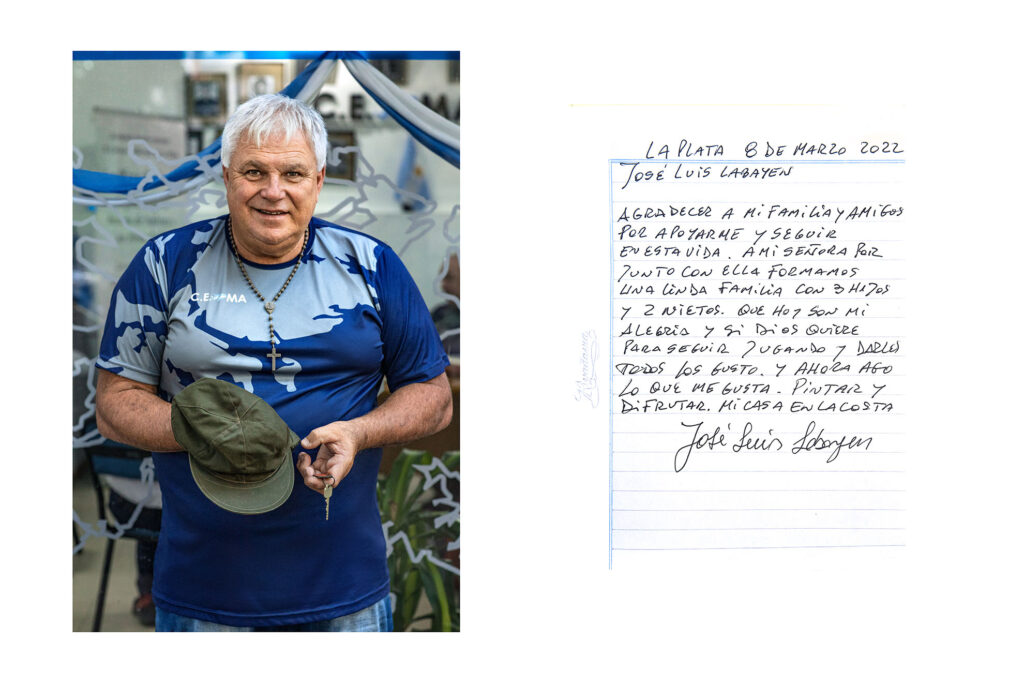 C.E. MA
C.E. MA
LA PLATA 8 DE MARZO 2022
JOSÉ LUIS LABAYEN
AGRADECER A MI FAMILIA Y AMIGOS
POR APOYARME Y SEGUIR
EN ESTA VIDA. A MI SEÑORA POR
JUNTO CON ELLA FORMAMOS
UNA LINDA FAMILIA CON 3 HIJOS
Y 2 NIETOS. QUE HOY SON MI
ALEGRIA Y SI DIOS QUIERE
PARA SEGUIR JUGANDO Y DARLES
TODOS LOS GUSTO. Y AHORA AGO
LO QUE ME GUSTA. PINTAR Y
DIFRUTAR. MI CASA EN LA COSTA
José Luis Labayen